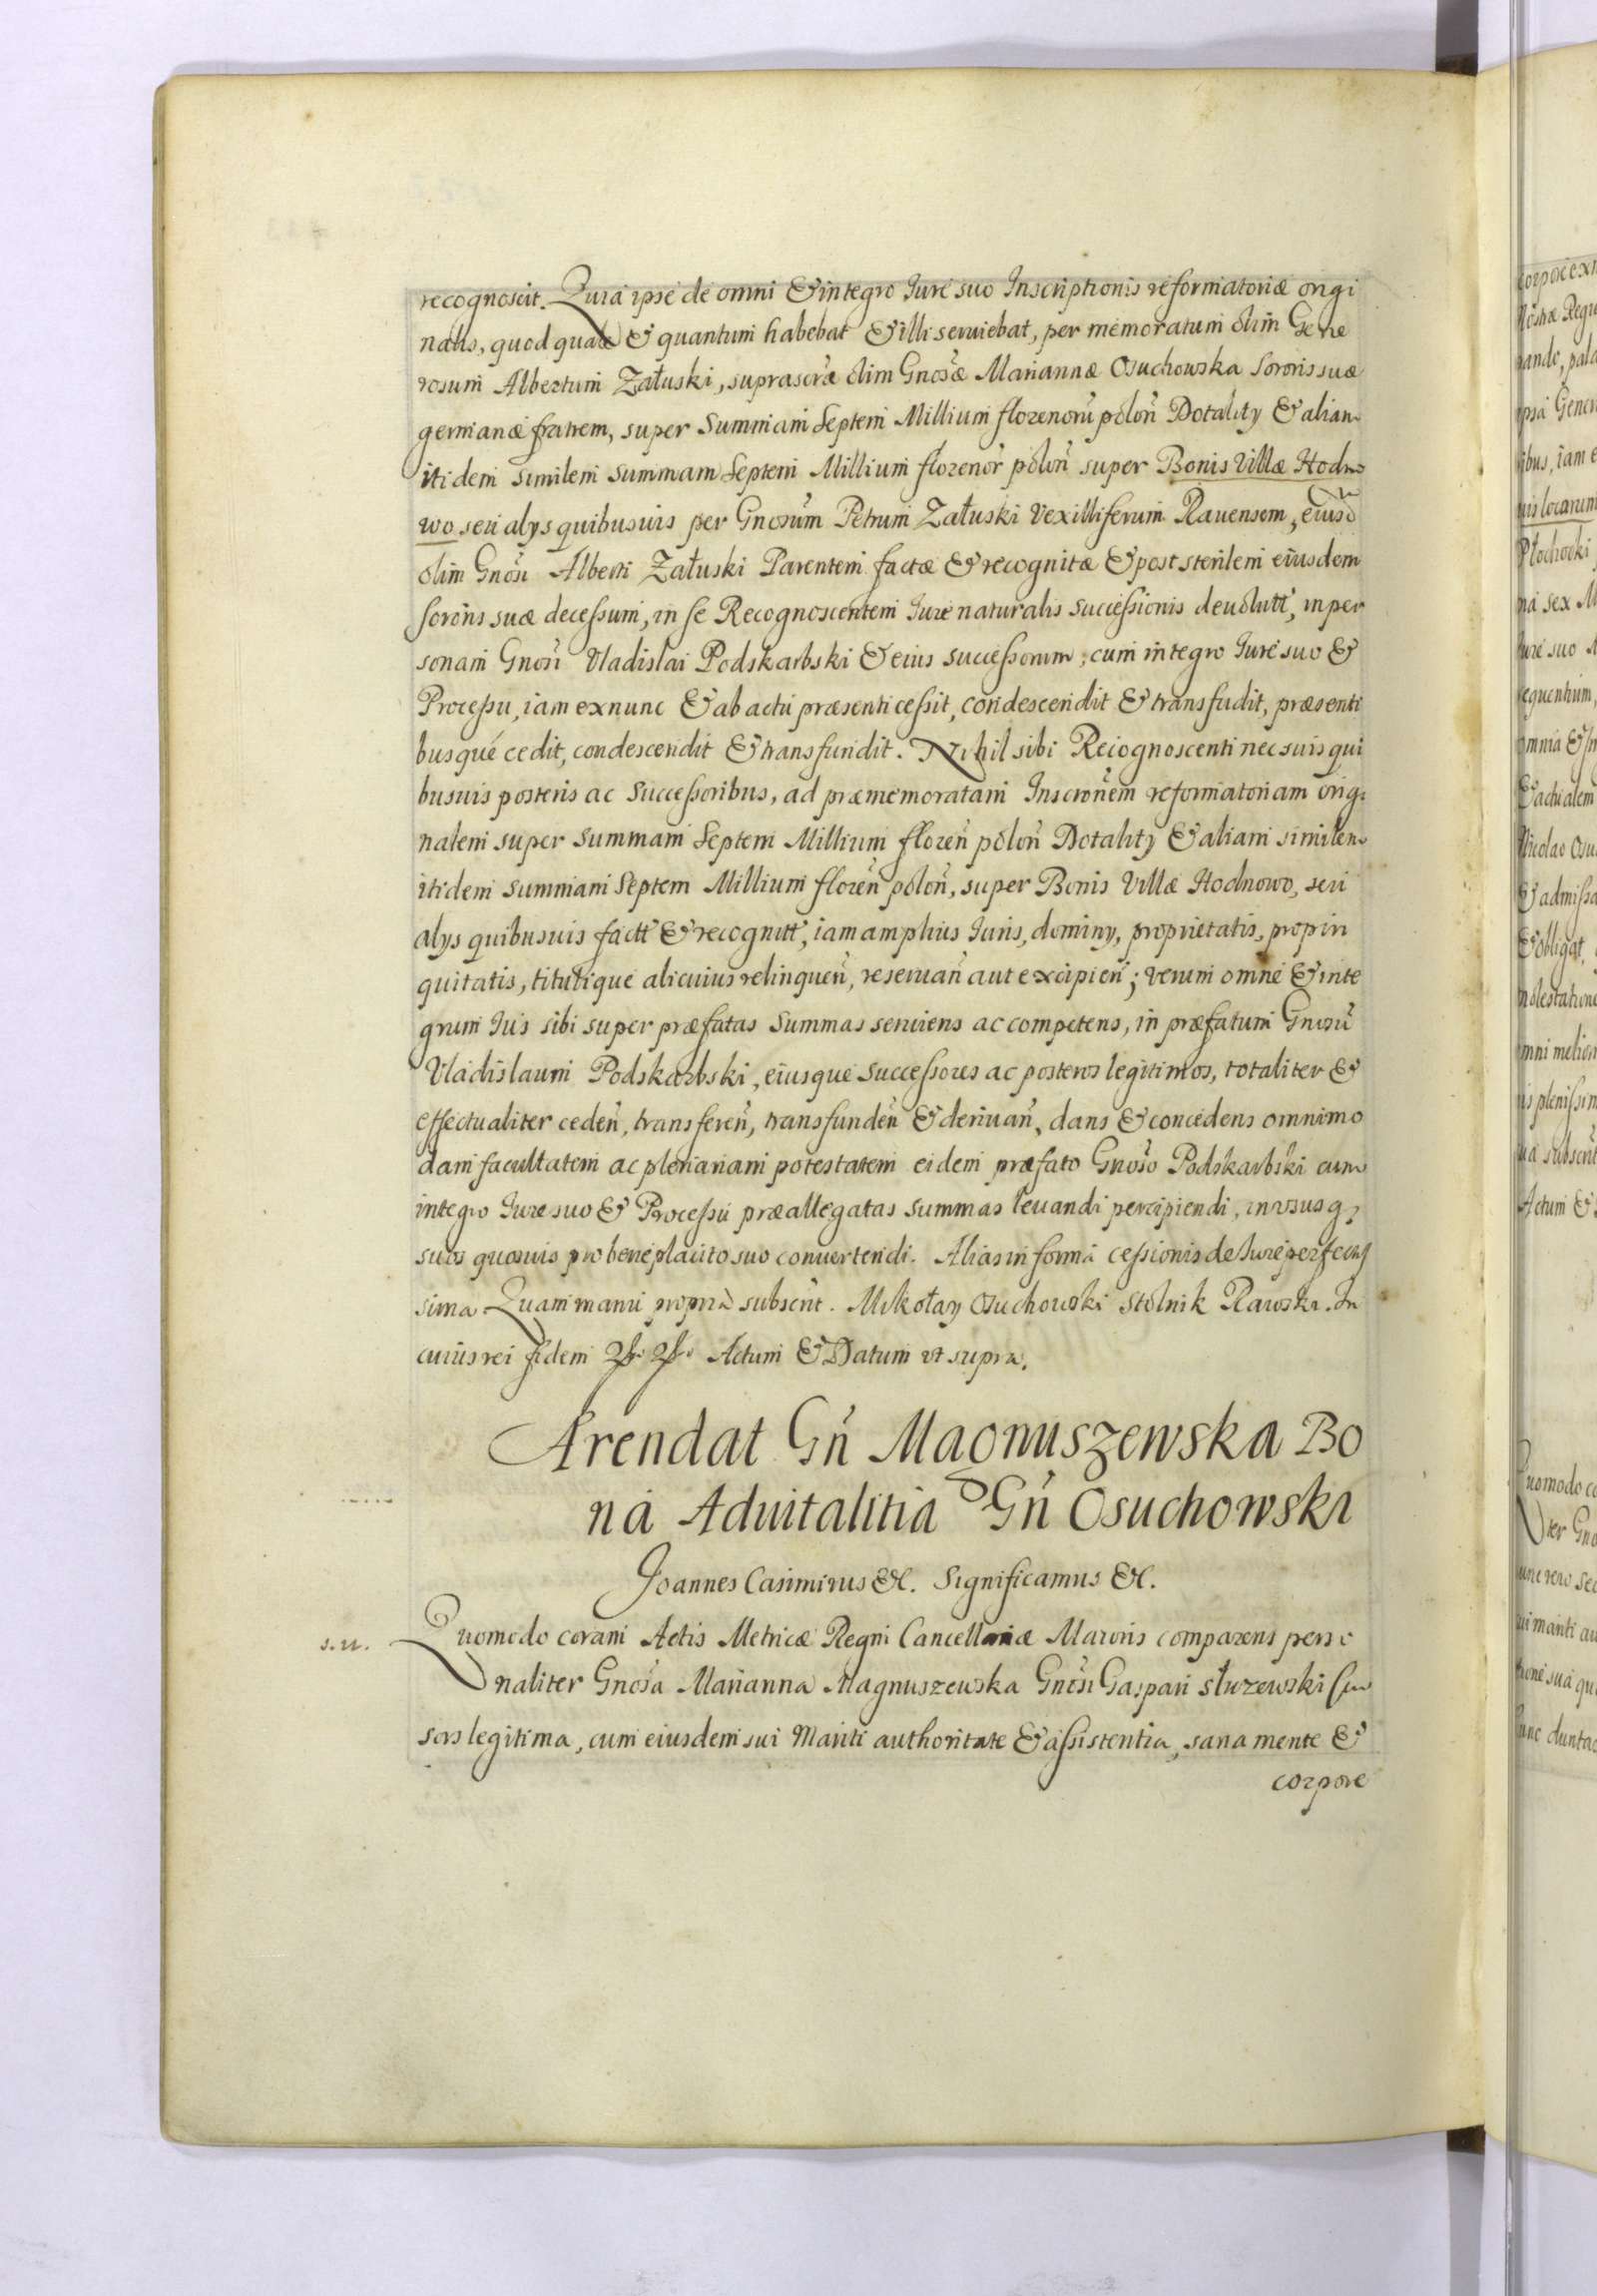 recognoscit. Quia ipse de omni & integro Iure suo Inscriptionis reformatoriæ origi
nalis, quod quale & quantum habebat & illi seruiebat, per memoratum olim Gene
rosum Albertum Załuski, suprascr̃æ olim Gnosæ Mariannæ Osuchowska Sororis suæ
germanæ fratrem, super Summam Septem Millium florenorũ polon̄ Dotality & aliam
itidem similem summam Septem Millium florenor̃ polon̄ super Bonis Villæ Hodno
wo seu alys quibusuis per Gnosum Petrum Załuski Vexilliferum Rauensem, eiusd
olim Gnosi Alberti Załuski Parentem factæ & recognitæ & post sterilem eiusdem
sororis suæ decessum, in se Recognoscentem Iure naturalis successionis deuolutt, in per
sonam Gnosi Vladislai Podskarbski & eius successorum, cum integro Iure suo &
Processu, iam exnunc & ab actu præsenti cessit, condescendit & transfudit, præsenti
busque cedit, condescendit & transfundit. Nihil sibi Recognoscenti nec suis qui
busuis posteris ac Successoribus, ad præmemoratam Inscronem reformatoriam origi
nalem super Summam Septem Millium floren̄ polon̄ Dotality & aliam similem
itidem summam Septem Millium floren̄ polon̄, super Bonis Villæ Hodnowo, seu
alys quibusuis factt & recognitt, iam amplius Iuris, dominy, proprietatis, propin
quitatis, titulique alicuius relinquen̄, reseruan̄ aut excipien̄; verum omne & inte
grum Ius sibi super præfatas Summas seruiens ac competens, in præfatum Gnosũ
Vladislaum Podskarbski, eiusque Successores ac posteros legitimos, totaliter &
effectualiter ceden̄, transferen̄, transfunden̄ & deriuan̄, dans & concedens omnimo
dam facultatem ac plenariam potestatem eidem præfato Gnoso Podskarbski cum
integro Iure suo & Processu præallegatas summas leuandi percipiendi, in vsus q3
suos quosuis pro beneplacito suo conuertendi. Alias in forma cessionis de Iure perfectis
sima Quam manu propria subscrit. Mikołay Osuchowski Stolnik Rawski. In
cuius rei fidem Actum & Datum vt supra.
Arendat Gn̄ Magnuszewska Bo
na Aduitalitia Gn̄ Osuchowski
Joannes Casimirus &c. Significamus &c.
s.n. Quomodo coram Actis Metricæ Regni Cancellariæ Maioris comparens perso
naliter Gnosa Marianna Magnuszewska Gnosi Gaspari Służewski Con
sors legitima, cum eiusdem sui Mariti authoritate & assistentia, sana mente &
corpore